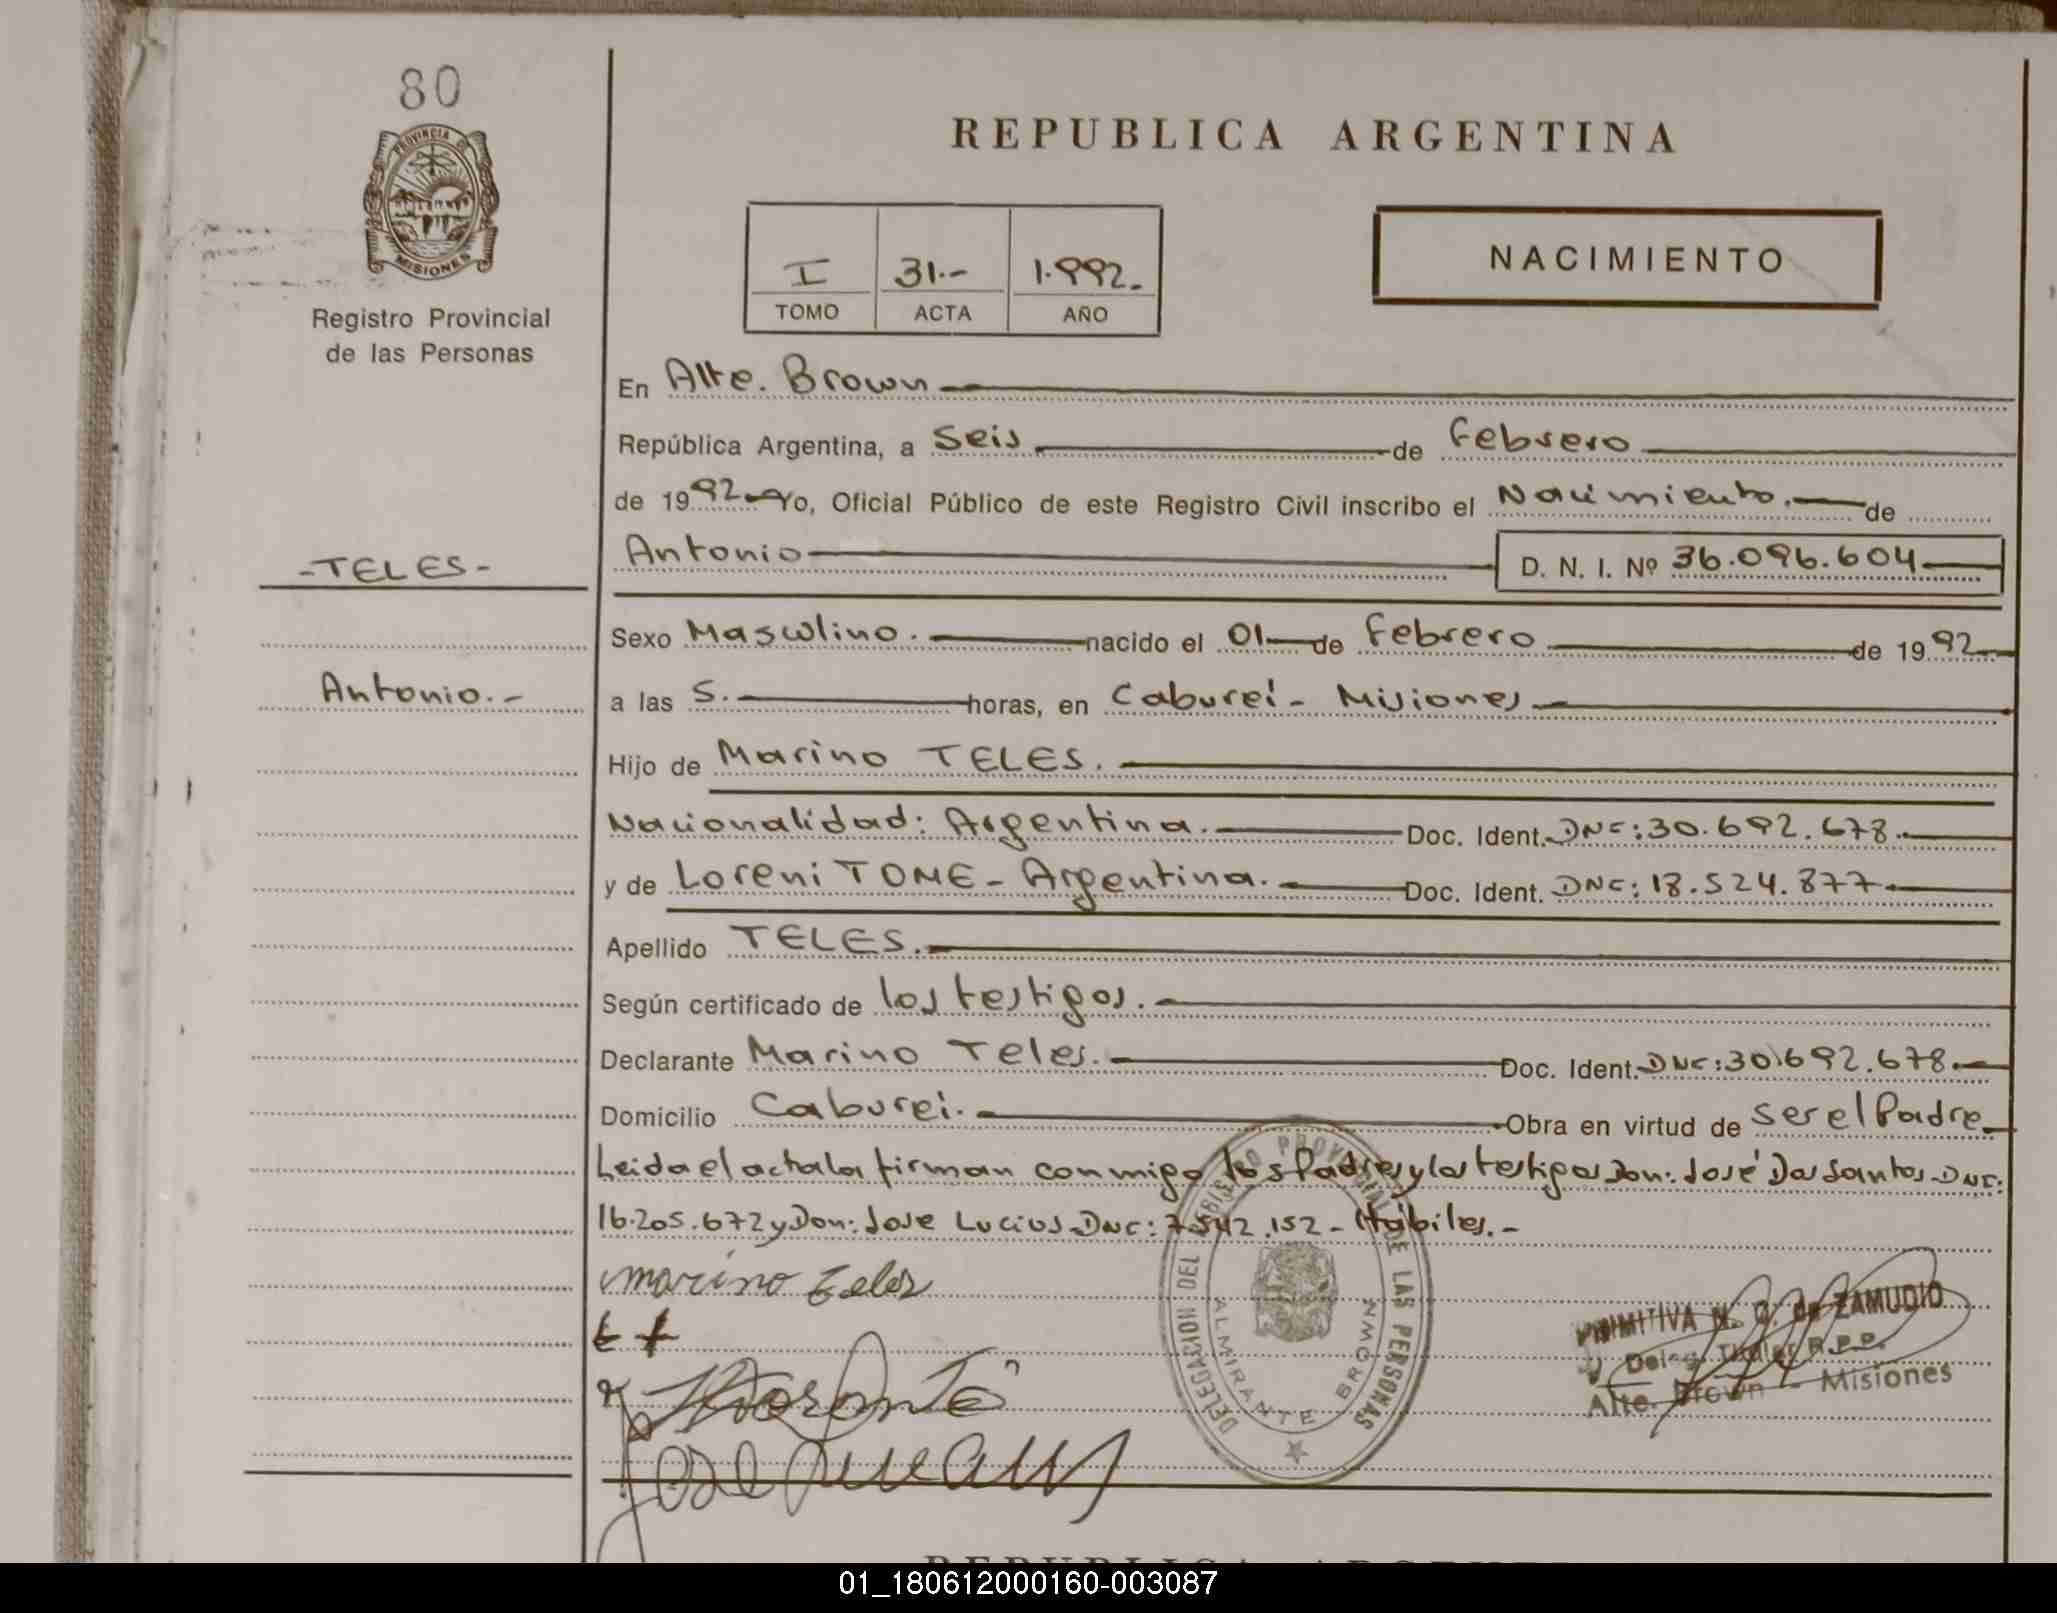 80
PROVINCIA DE
MISIONES
Registro Provincial
de las Personas
REPUBLICA ARGENTINA
I 31.- 1.992.-
TOMO ACTA AÑO
NACIMIENTO
En Alte. Brown
República Argentina, a Seis de Febrero
de 1992 Yo, Oficial Público de este Registro Civil inscribo el Nacimiento. de
-TELES-
Antonio D. N. I. Nº 36.096.604
Sexo Masculino. nacido el 01 de Febrero de 1992
Antonio.-
a las 5. horas, en Caburei - Misiones
Hijo de Marino TELES.
Nacionalidad: Argentina. Doc. Ident. DNC: 30.692.678.
y de Loreni TOME - Argentina. Doc. Ident. DNC: 18.524.877
Apellido TELES.
Según certificado de los testigos.
Declarante Marino Teles. Doc. Ident. DNC: 30.692.678.
Domicilio Caburei. Obra en virtud de ser el Padre
Leida el acta la firman conmigo los Padres y los testigos Don: José Dos Santos - DNC:
16.205.672 y Don: Jose Lucius DNC: 7.542.152 - Hábiles.-
marino Teles
DELEGACION DEL REGISTRO PROVINCIAL DE LAS PERSONAS
ALMIRANTE BROWN
PRIMITIVA N. de ZAMUDIO
Deleg. Titular R.P.P.
Alte. Brown - Misiones
01_180612000160-003087